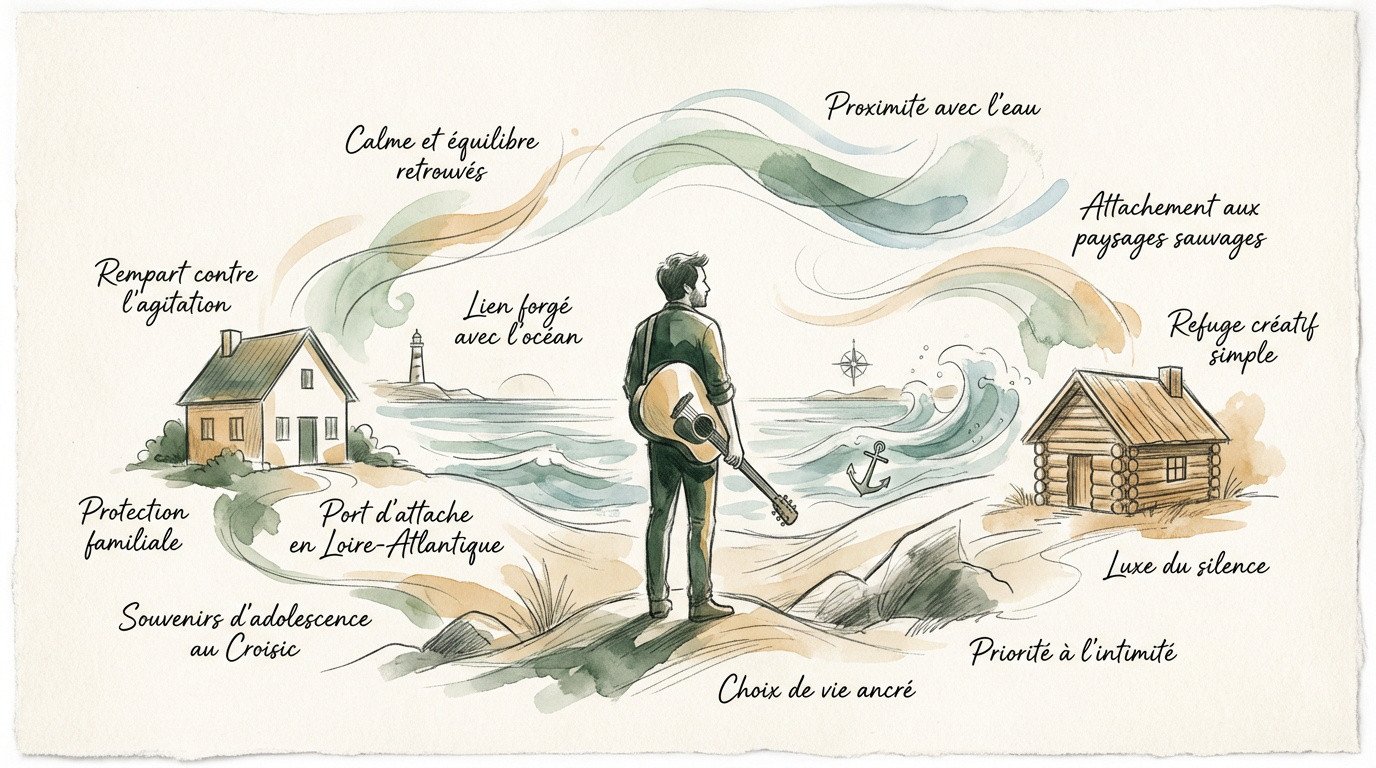 Proximité avec l'eau
Calme et équilibre
retrouvés
Attachement aux
paysages sauvages
Rempart contre
l'agitation
Lien forgé
avec l'océan
Refuge créatif
simple
Protection
familiale
Port d'attache
en Loire-Atlantique
Luxe du silence
Souvenirs d'adolescence
au Croisic
Priorité à l'intimité
Choix de vie ancré